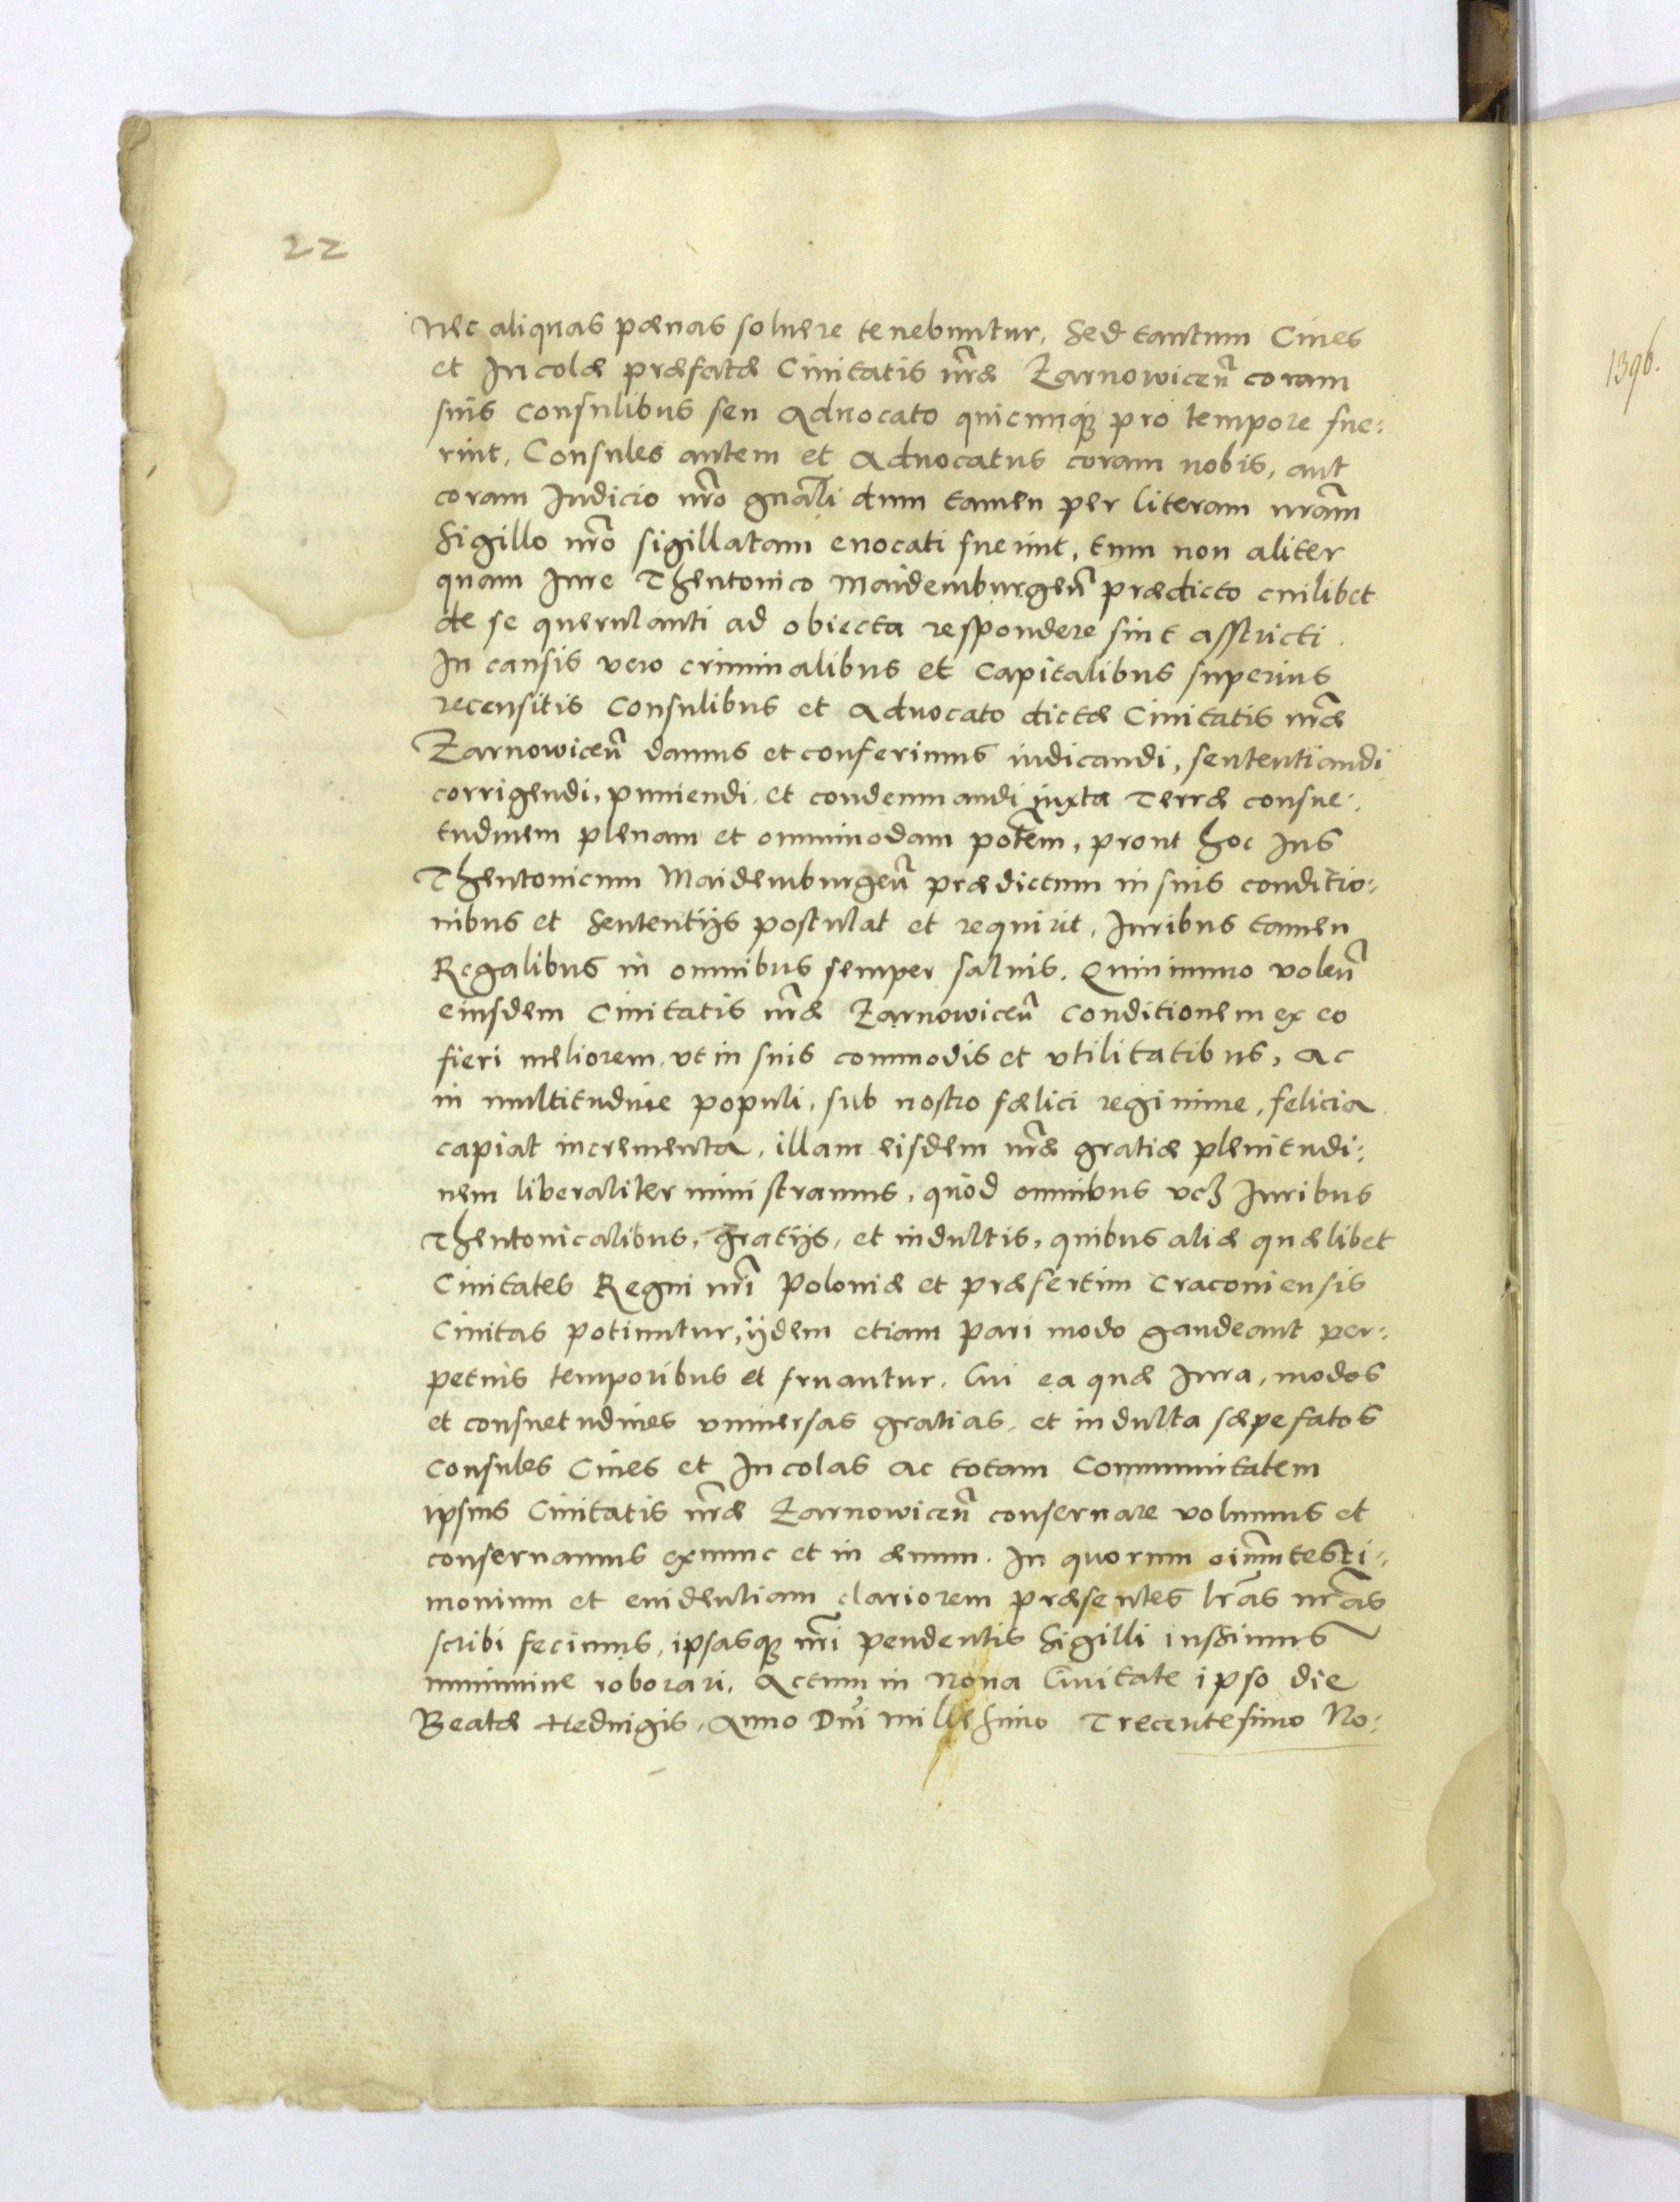 22
Nec aliquas pœnas soluere tenebuntur, Sed tantum Ciues
et Incolæ præfatæ Ciuitatis nr̃æ Zarnowiceñ coram
suis Consulibus seu Aduocato quicunq; pro tempore fue:
rint, Consules autem et Aduocatus coram nobis, aut
coram Iudicio nr̃o gnãli dum tamen per literam nrãm
Sigillo nr̃o sigillatam euocati fuerint, tum non aliter
quam Iure Theutonico Maidemburgeñ prædicto cuilibet
de se querulanti ad obiecta respondere sint astricti.
In causis vero criminalibus et Capitalibus superius
recensitis Consulibus et Aduocato dictæ Ciuitatis nr̃æ
Zarnowiceñ damus et conferimus iudicandi, sententiandi
corrigendi, puniendi, et condemnandi iuxta Terræ consue:
tudinem plenam et omnimodam potẽm, prout hoc Ius
Theutonicum Maidemburgeñ prædictum in suis conditio:
nibus et Sententijs postulat et requirit, Iuribus tamen
Regalibus in omnibus semper saluis. Quinimmo voleñ
eiusdem Ciuitatis nr̃æ Zarnowiceñ Conditionem ex eo
fieri meliorem, vt in suis commodis et vtilitatibus, ac
in multitudine populi, sub nostro fælici regimine, felicia
capiat incrementa, illam eisdem nr̃æ gratiæ plenitudi:
nem liberaliter ministramus, quod omnibus vcȝ Iuribus
Theutonicalibus, gratijs, et indultis, quibus aliæ quælibet
Ciuitates Regni nr̃i Poloniæ et præsertim Cracouiensis
Ciuitas potiuntur, ijdem etiam pari modo gaudeant per:
petuis temporibus et fruantur. Cui ea quæ Iura, modos
et consuetudines vniuersas gratias, et indulta sæpefatos
Consules Ciues et Incolas ac totam Communitatem
ipsius Ciuitatis nr̃æ Zarnowiceñ conseruare volumus et
conseruamus exnunc et in æuum. In quorum oim̃m testi:
monium et euidentiam clariorem præsentes lrãs nrãs
scribi fecimus, ipsasq; nr̃i pendentis Sigilli iussimus
munimine roborari. Actum in Noua Ciuitate ipso die
Beatæ Heduigis, Anno Dñi Millesimo Trecentesimo No:
1396.